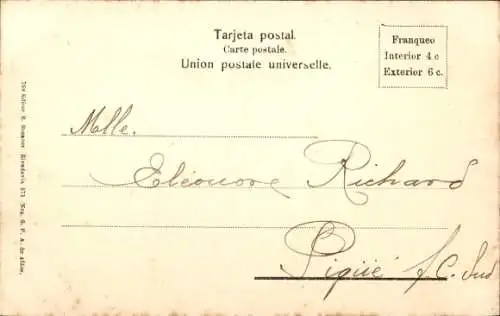 Tarjeta postal.
Carte postale.
Union postale universelle.
Franqueo
Interior 4 c
Exterior 6 c.
Mlle.
Eléonore Richard
Pigüé f. C. Sud
Editor R. Rosauer, Rivadavia 571